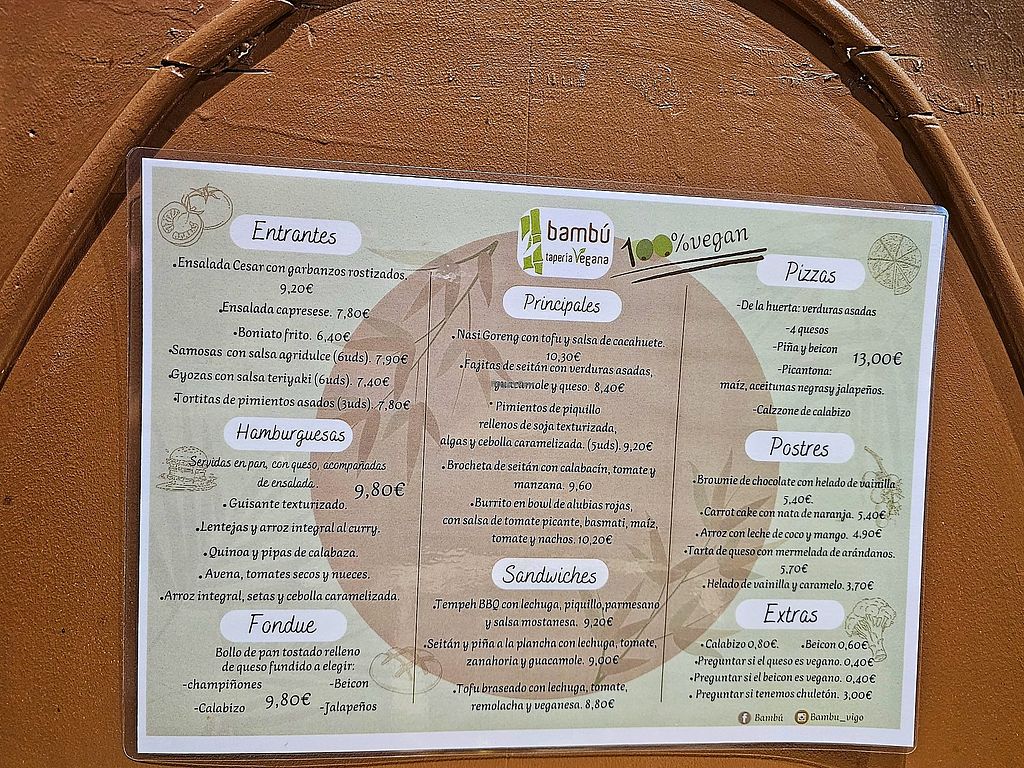 bambú
tapería Vegana
100% vegan
Entrantes
.Ensalada Cesar con garbanzos rostizados.
9,20€
.Ensalada capresese. 7,80€
•Boniato frito. 6,40€
•Samosas con salsa agridulce (6uds). 7,90€
.Gyozas con salsa teriyaki (6uds). 7,40€
.Tortitas de pimientos asados (3uds). 7,80€
Hamburguesas
Servidas en pan, con queso, acompañadas
de ensalada. 9,80€
• Guisante texturizado.
.Lentejas y arroz integral al curry.
•Quinoa y pipas de calabaza.
. Avena, tomates secos y nueces.
•Arroz integral, setas y cebolla caramelizada.
Fondue
Bollo de pan tostado relleno
de queso fundido a elegir:
-champiñones -Beicon
-Calabizo 9,80€ -Jalapeños
Principales
. Nasi Goreng con tofu y salsa de cacahuete.
10,30€
•Fajitas de seitán con verduras asadas,
guacamole y queso. 8,40€
• Pimientos de piquillo
rellenos de soja texturizada,
algas y cebolla caramelizada. (5uds). 9,20€
•Brocheta de seitán con calabacín, tomate y
manzana. 9,60
•Burrito en bowl de alubias rojas,
con salsa de tomate picante, basmati, maíz,
tomate y nachos. 10,20€
Sandwiches
.Tempeh BBQ con lechuga, piquillo, parmesano
y salsa mostanesa. 9,20€
.Seitán y piña a la plancha con lechuga, tomate,
zanahoria y guacamole. 9,00€
.Tofu braseado con lechuga, tomate,
remolacha y veganesa. 8,80€
Pizzas
-De la huerta: verduras asadas
-4 quesos
-Piña y beicon 13,00€
-Picantona:
maíz, aceitunas negras y jalapeños.
-Calzzone de calabizo
Postres
.Brownie de chocolate con helado de vainilla
5,40€.
.Carrot cake con nata de naranja. 5,40€
.Arroz con leche de coco y mango. 4,90€
•Tarta de queso con mermelada de arándanos.
5,70€
.Helado de vainilla y caramelo. 3,70€
Extras
•Calabizo 0,80€. •Beicon 0,60€.
•Preguntar si el queso es vegano. 0,40€
•Preguntar si el beicon es vegano. 0,40€
• Preguntar si tenemos chuletón. 3,00€
Bambú Bambu_vigo